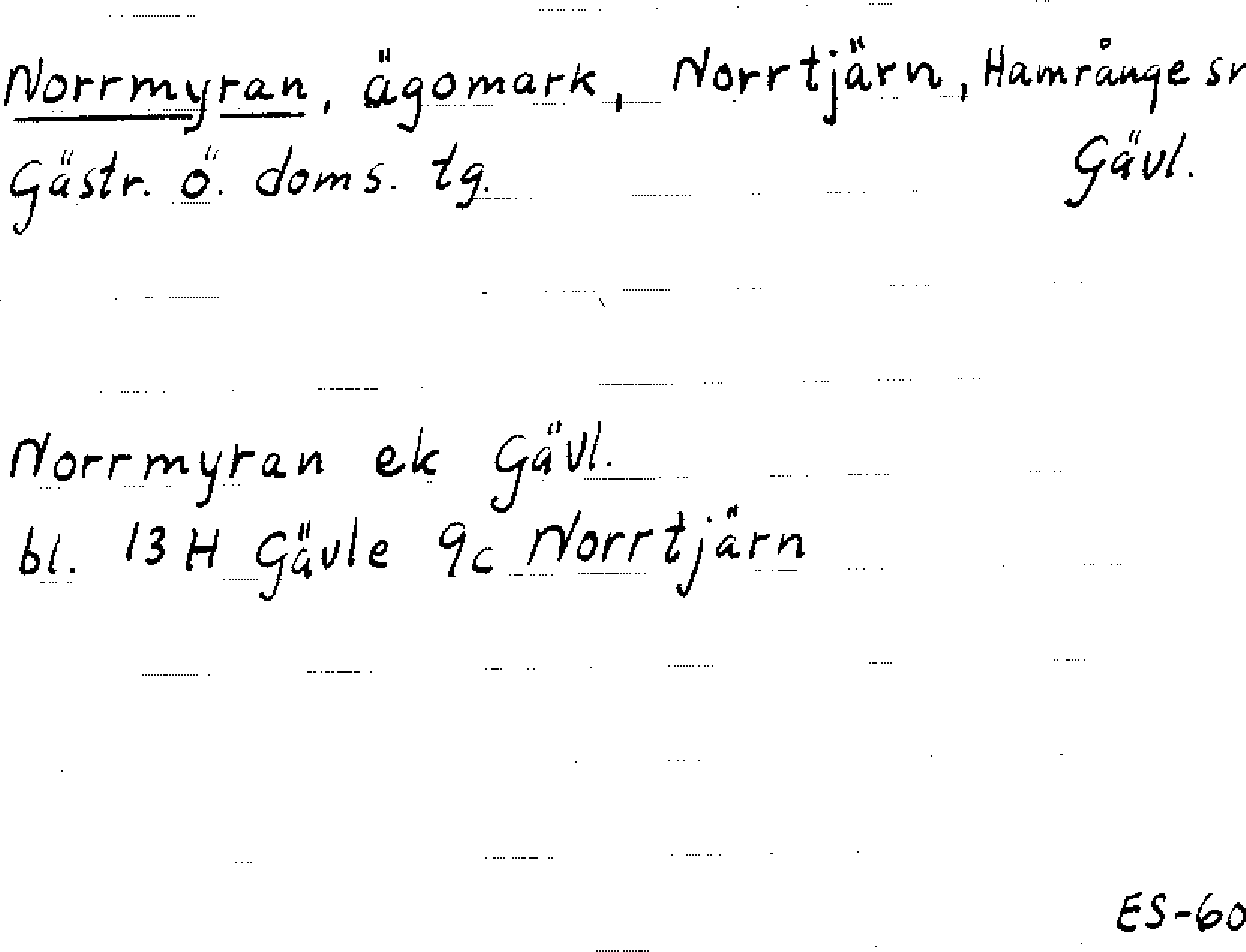 Norrmyran, ägomark, Norrtjärn, Hamrånge sn
Gästr. ö. doms. tg. Gävl.
Norrmyran ek Gävl.
bl. 13H Gävle 9c Norrtjärn
ES-60